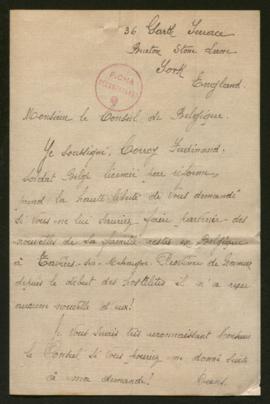 36 Garth Terrace
Burton Stone Lane
York
England.
Monsieur le Consul de Belgique.
Je soussigné, Ferdinand.
soldat Belge licencié par réforme
prend la haute liberté de vous demandé
si vous me lui sauriez faire parvenir des
nouvelles de sa famille restés en Belgique
à Province de
depuis le début des hostilités il n'a reçu
aucune nouvelle d'eux!
Je vous serais très reconnaissant Monsieur
le Consul si vous pouviez me donné suite
à ma demande!